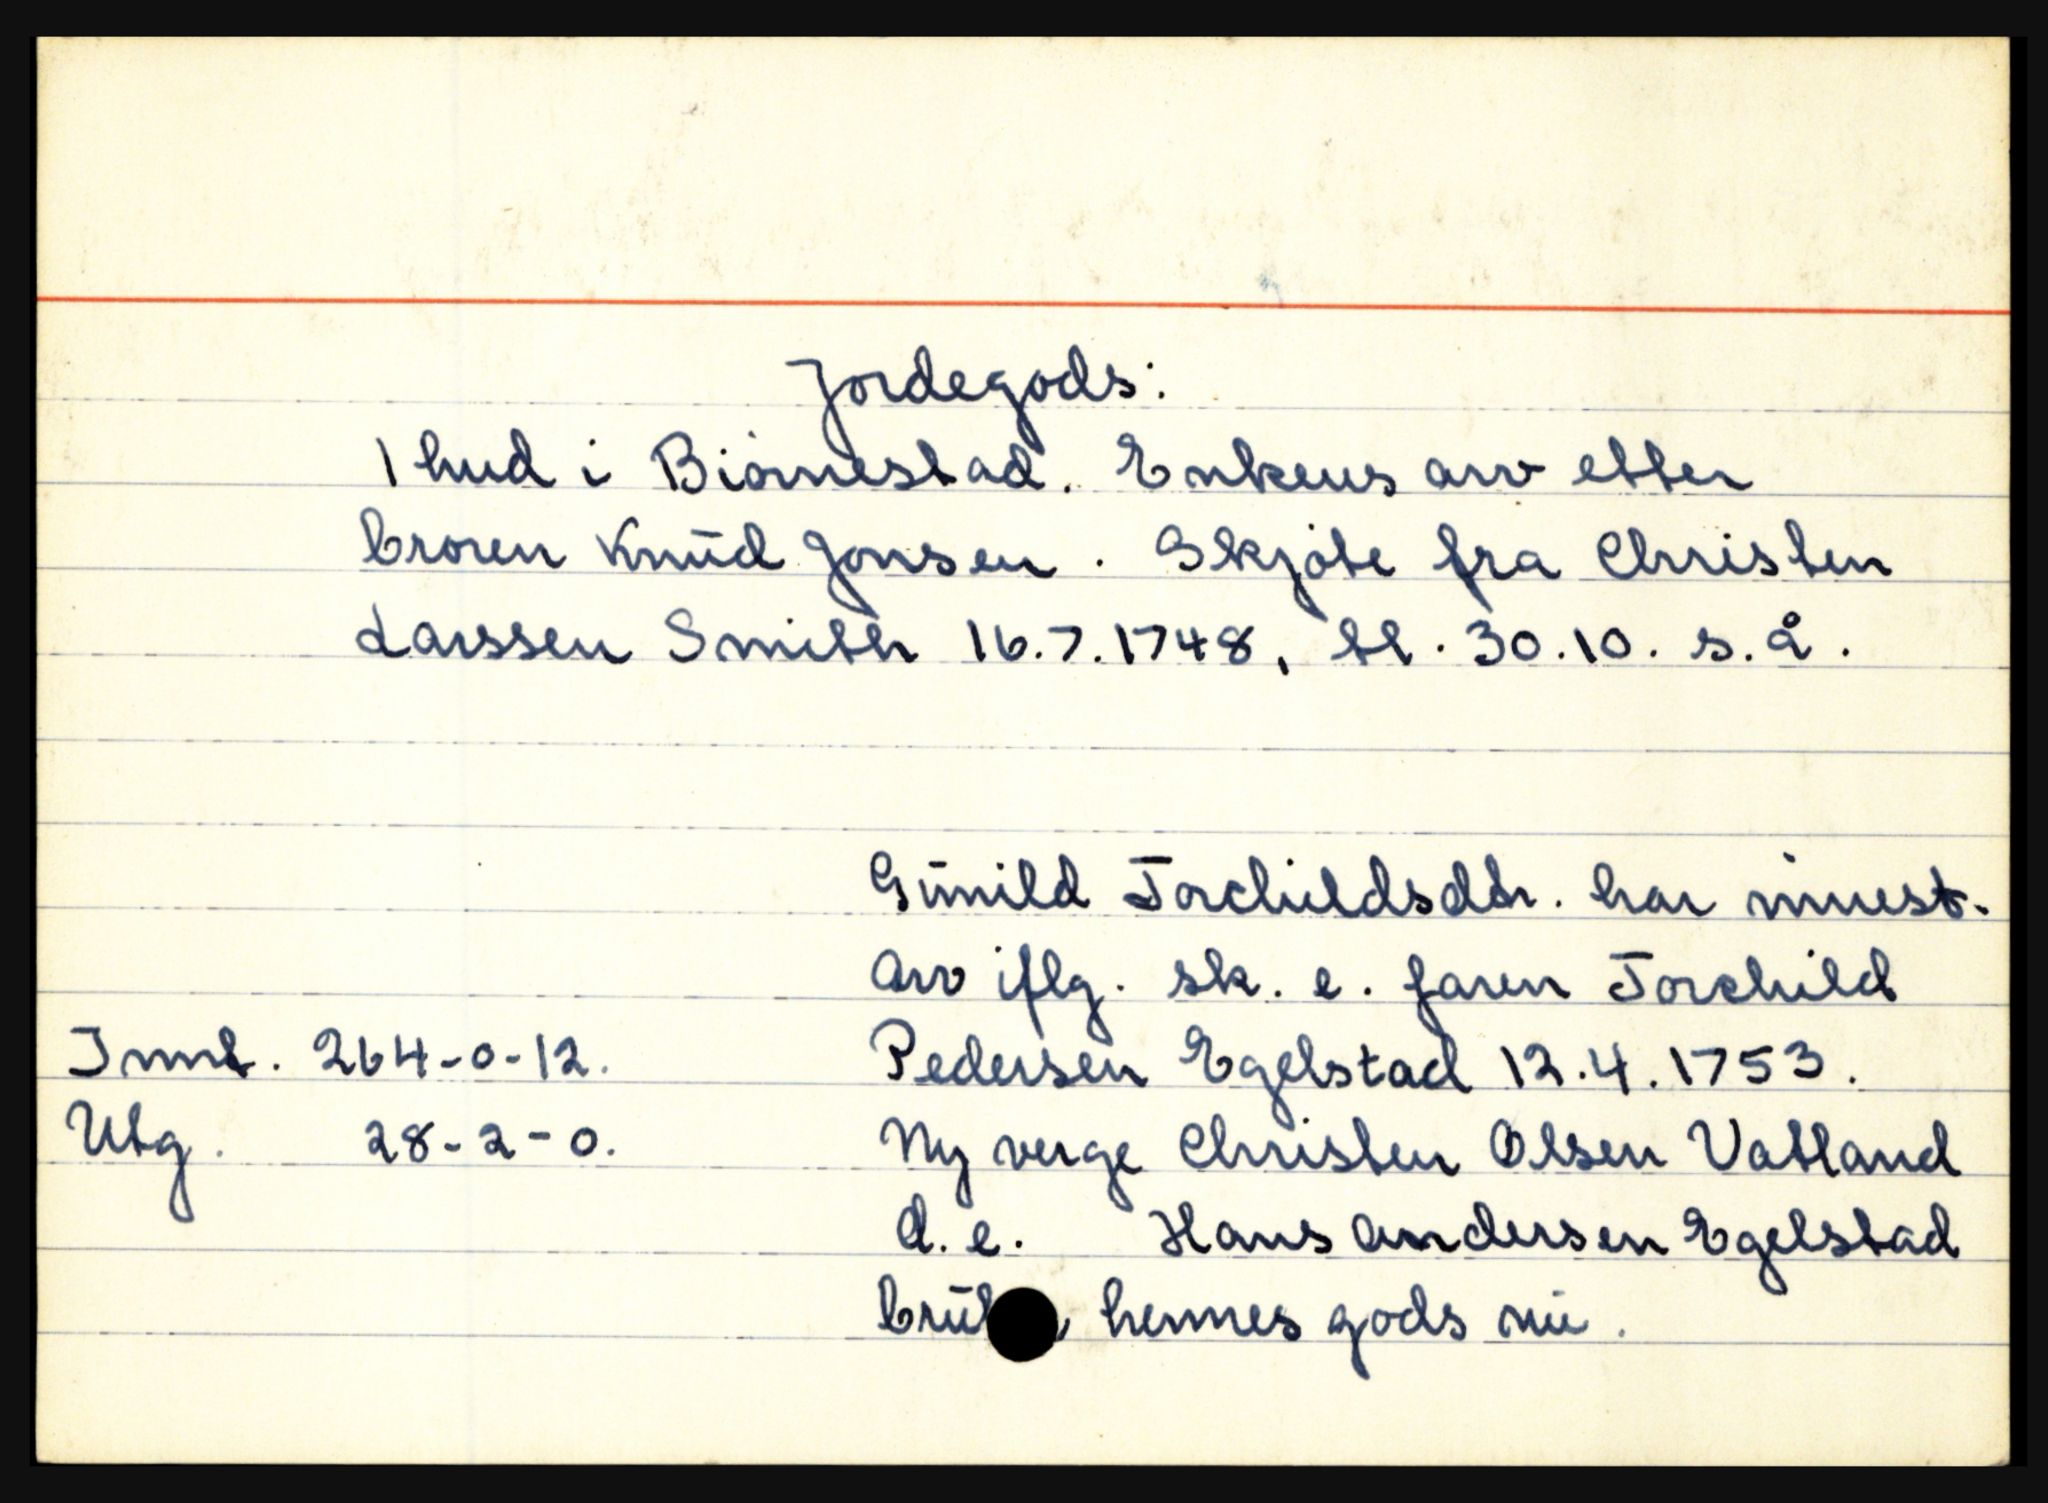 Jordegods:
1 hud i Biørnestad. Enkens arv etter
broren Knud Jonsen. Skjøte fra Christen
Larssen Smith 16.7.1748, tl. 30.10. s.å.
Gunild Torchildsdtr. har innest.
Arv iflg. sk. e. faren Torchild
Innt. 264-0-12. Pedersen Egelstad 12.4.1753.
Utg. 28-2-0. Ny verge Christen Olsen Vatland
d.e. Hans Andersen Egelstad
hennes gods nu.